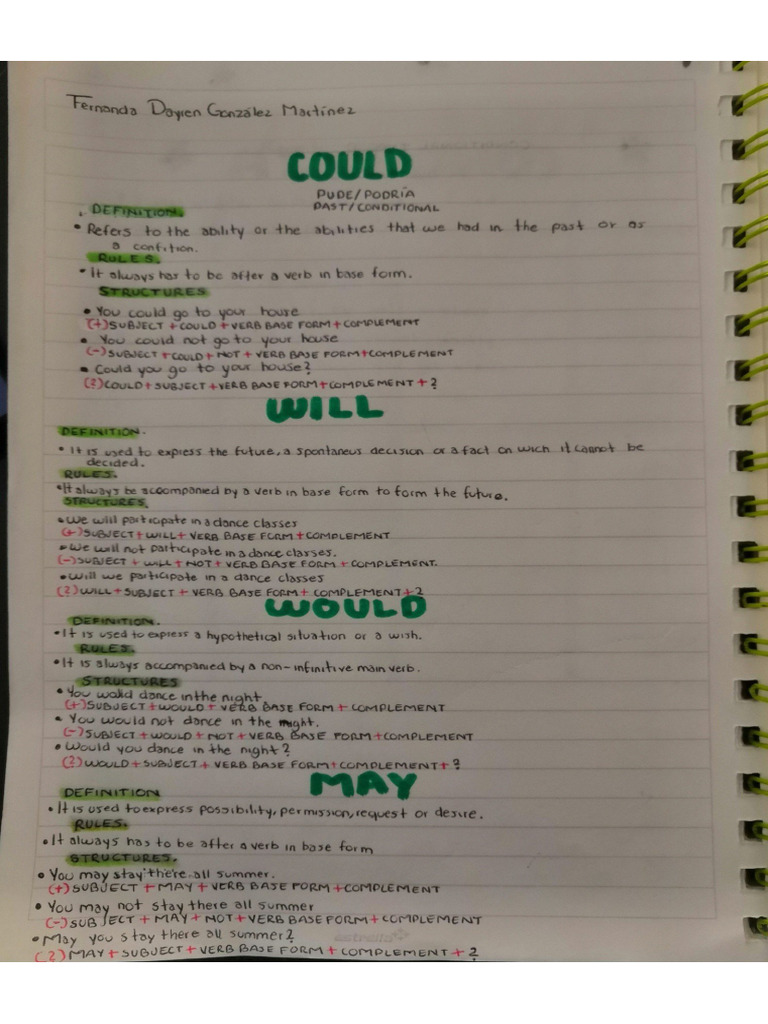 Fernanda Dayren González Martínez
COULD
PUDE/PODRÍA
PAST/CONDITIONAL
DEFINITION.
• Refers to the ability or the abilities that we had in the past or as
a confition.
RULES.
• It always has to be after a verb in base form.
STRUCTURES
• You could go to your house
(+)SUBJECT + COULD + VERB BASE FORM + COMPLEMENT
• You could not go to your house
(-)SUBJECT + COULD + NOT + VERB BASE FORM + COMPLEMENT
• Could you go to your house?
(?)COULD + SUBJECT + VERB BASE FORM + COMPLEMENT + ?
WILL
DEFINITION.
• It is used to express the future, a spontaneus decision or a fact on wich it cannot be
decided.
RULES.
• It always be accompanied by a verb in base form to form the future.
STRUCTURES.
• We will participate in a dance classes
(+)SUBJECT + WILL + VERB BASE FORM + COMPLEMENT
• We will not participate in a dance classes.
(-)SUBJECT + WILL + NOT + VERB BASE FORM + COMPLEMENT.
• Will we participate in a dance classes
(?)WILL + SUBJECT + VERB BASE FORM + COMPLEMENT + ?
WOULD
DEFINITION.
• It is used to express a hypothetical situation or a wish.
RULES.
• It is always accompanied by a non-infinitive main verb.
STRUCTURES
• You would dance in the night
(+)SUBJECT + WOULD + VERB BASE FORM + COMPLEMENT
• You would not dance in the night.
(-)SUBJECT + WOULD + NOT + VERB BASE FORM + COMPLEMENT
• Would you dance in the night?
(?)WOULD + SUBJECT + VERB BASE FORM + COMPLEMENT + ?
MAY
DEFINITION
• It is used to express possibility, permission, request or desire.
RULES.
• It always has to be after a verb in base form
STRUCTURES.
• You may stay there all summer.
(+)SUBJECT + MAY + VERB BASE FORM + COMPLEMENT
• You may not stay there all summer
(-)SUBJECT + MAY + NOT + VERB BASE FORM + COMPLEMENT
• May you stay there all summer?
(?)MAY + SUBJECT + VERB BASE FORM + COMPLEMENT + ?